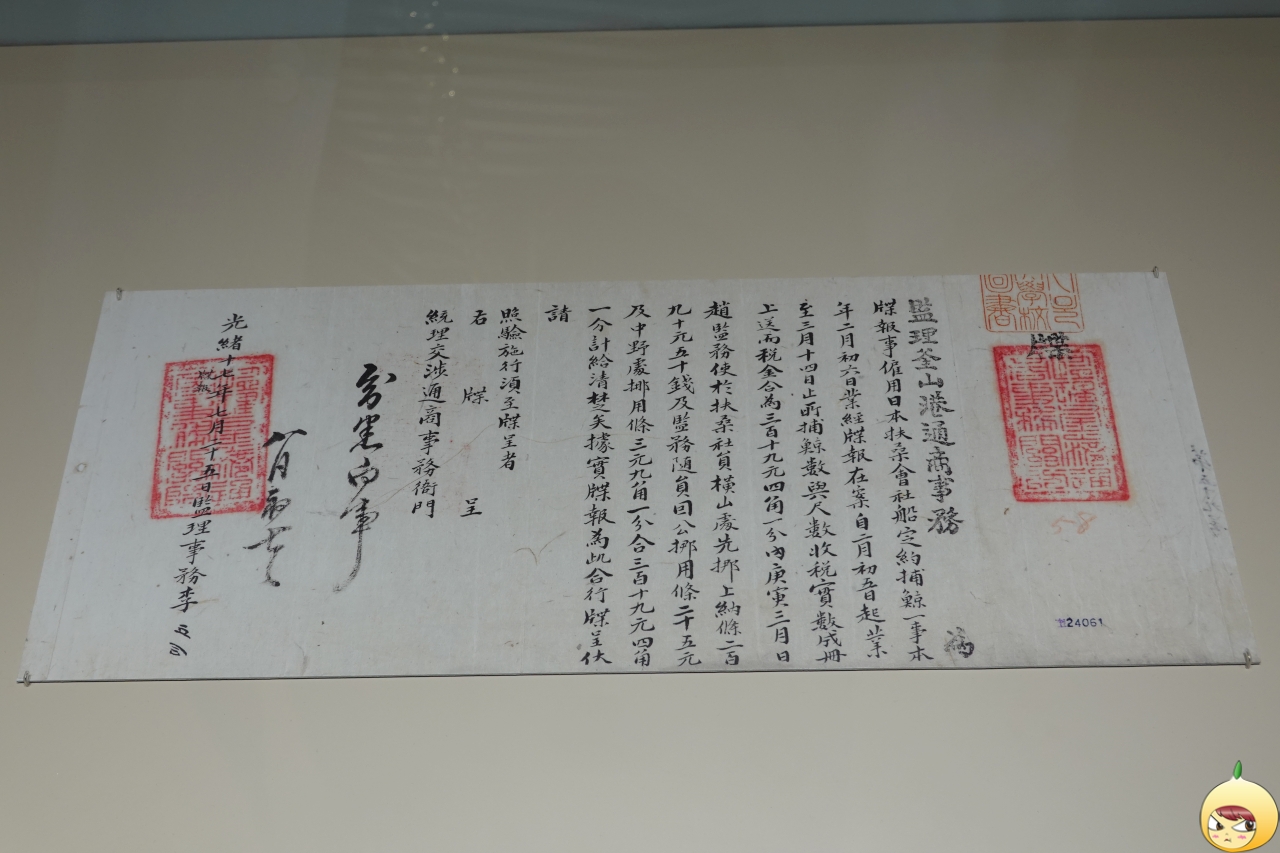 牒
監理釜山港通商事務 為
牒報事僱用日本扶桑會社船定約捕鯨一事本
年二月初六日業經牒報在案自二月初五日起業
至三月十四日止所捕鯨數與尺數收稅實數成冊
上送而稅金合為三百十九元四角一分內庚寅三月日
趙監務使於扶桑社員橫山處先挪上納條二百
九十元五十錢及監務隨員因公挪用條二十五元
及中野處挪用條三元九角一分合三百十九元四角
一分計給清楚矣據實牒報為此合行牒呈伏
請
照驗施行須至牒呈者
右 牒 呈
統理交涉通商事務衙門
光緒十七年七月二十五日監理事務李
58
24061